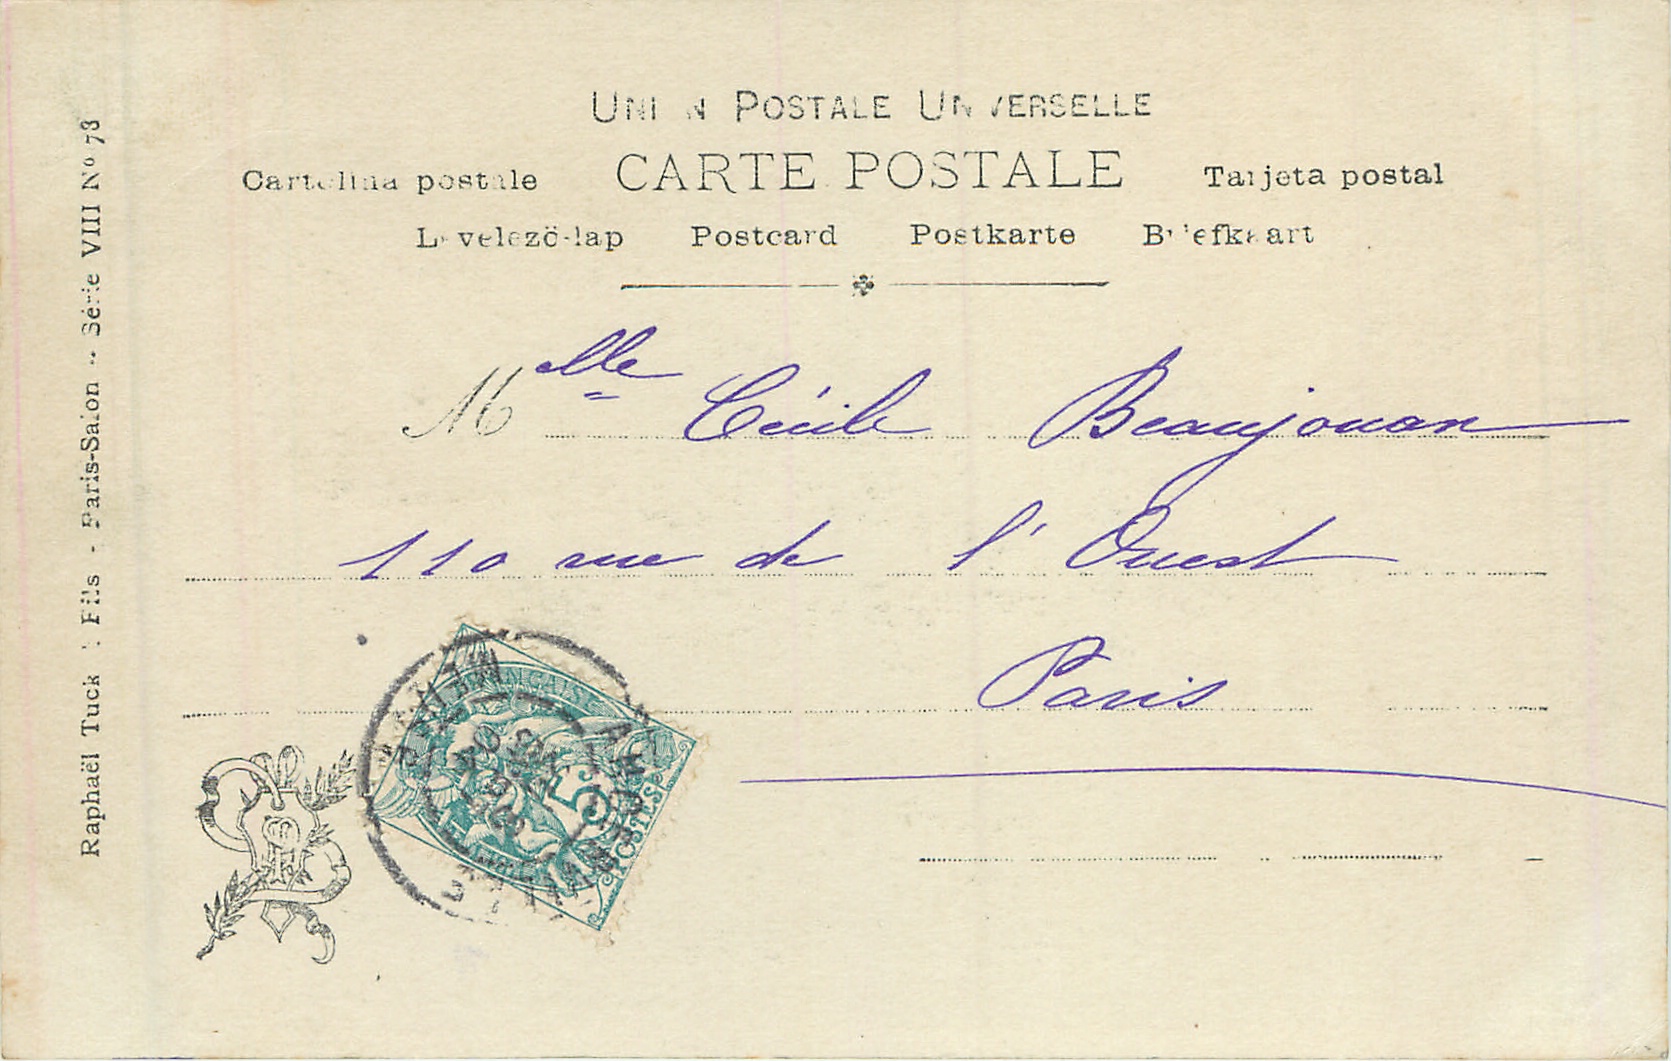 UNION POSTALE UNIVERSELLE
Cartolina postale CARTE POSTALE Tarjeta postal
Levelező-lap Postcard Postkarte Briefkaart
Mlle Cécile Beaujouan
110 rue de l'Ouest
Paris
Raphaël Tuck & Fils - Paris-Salon -- Série VIII Nº 78
5
POSTES